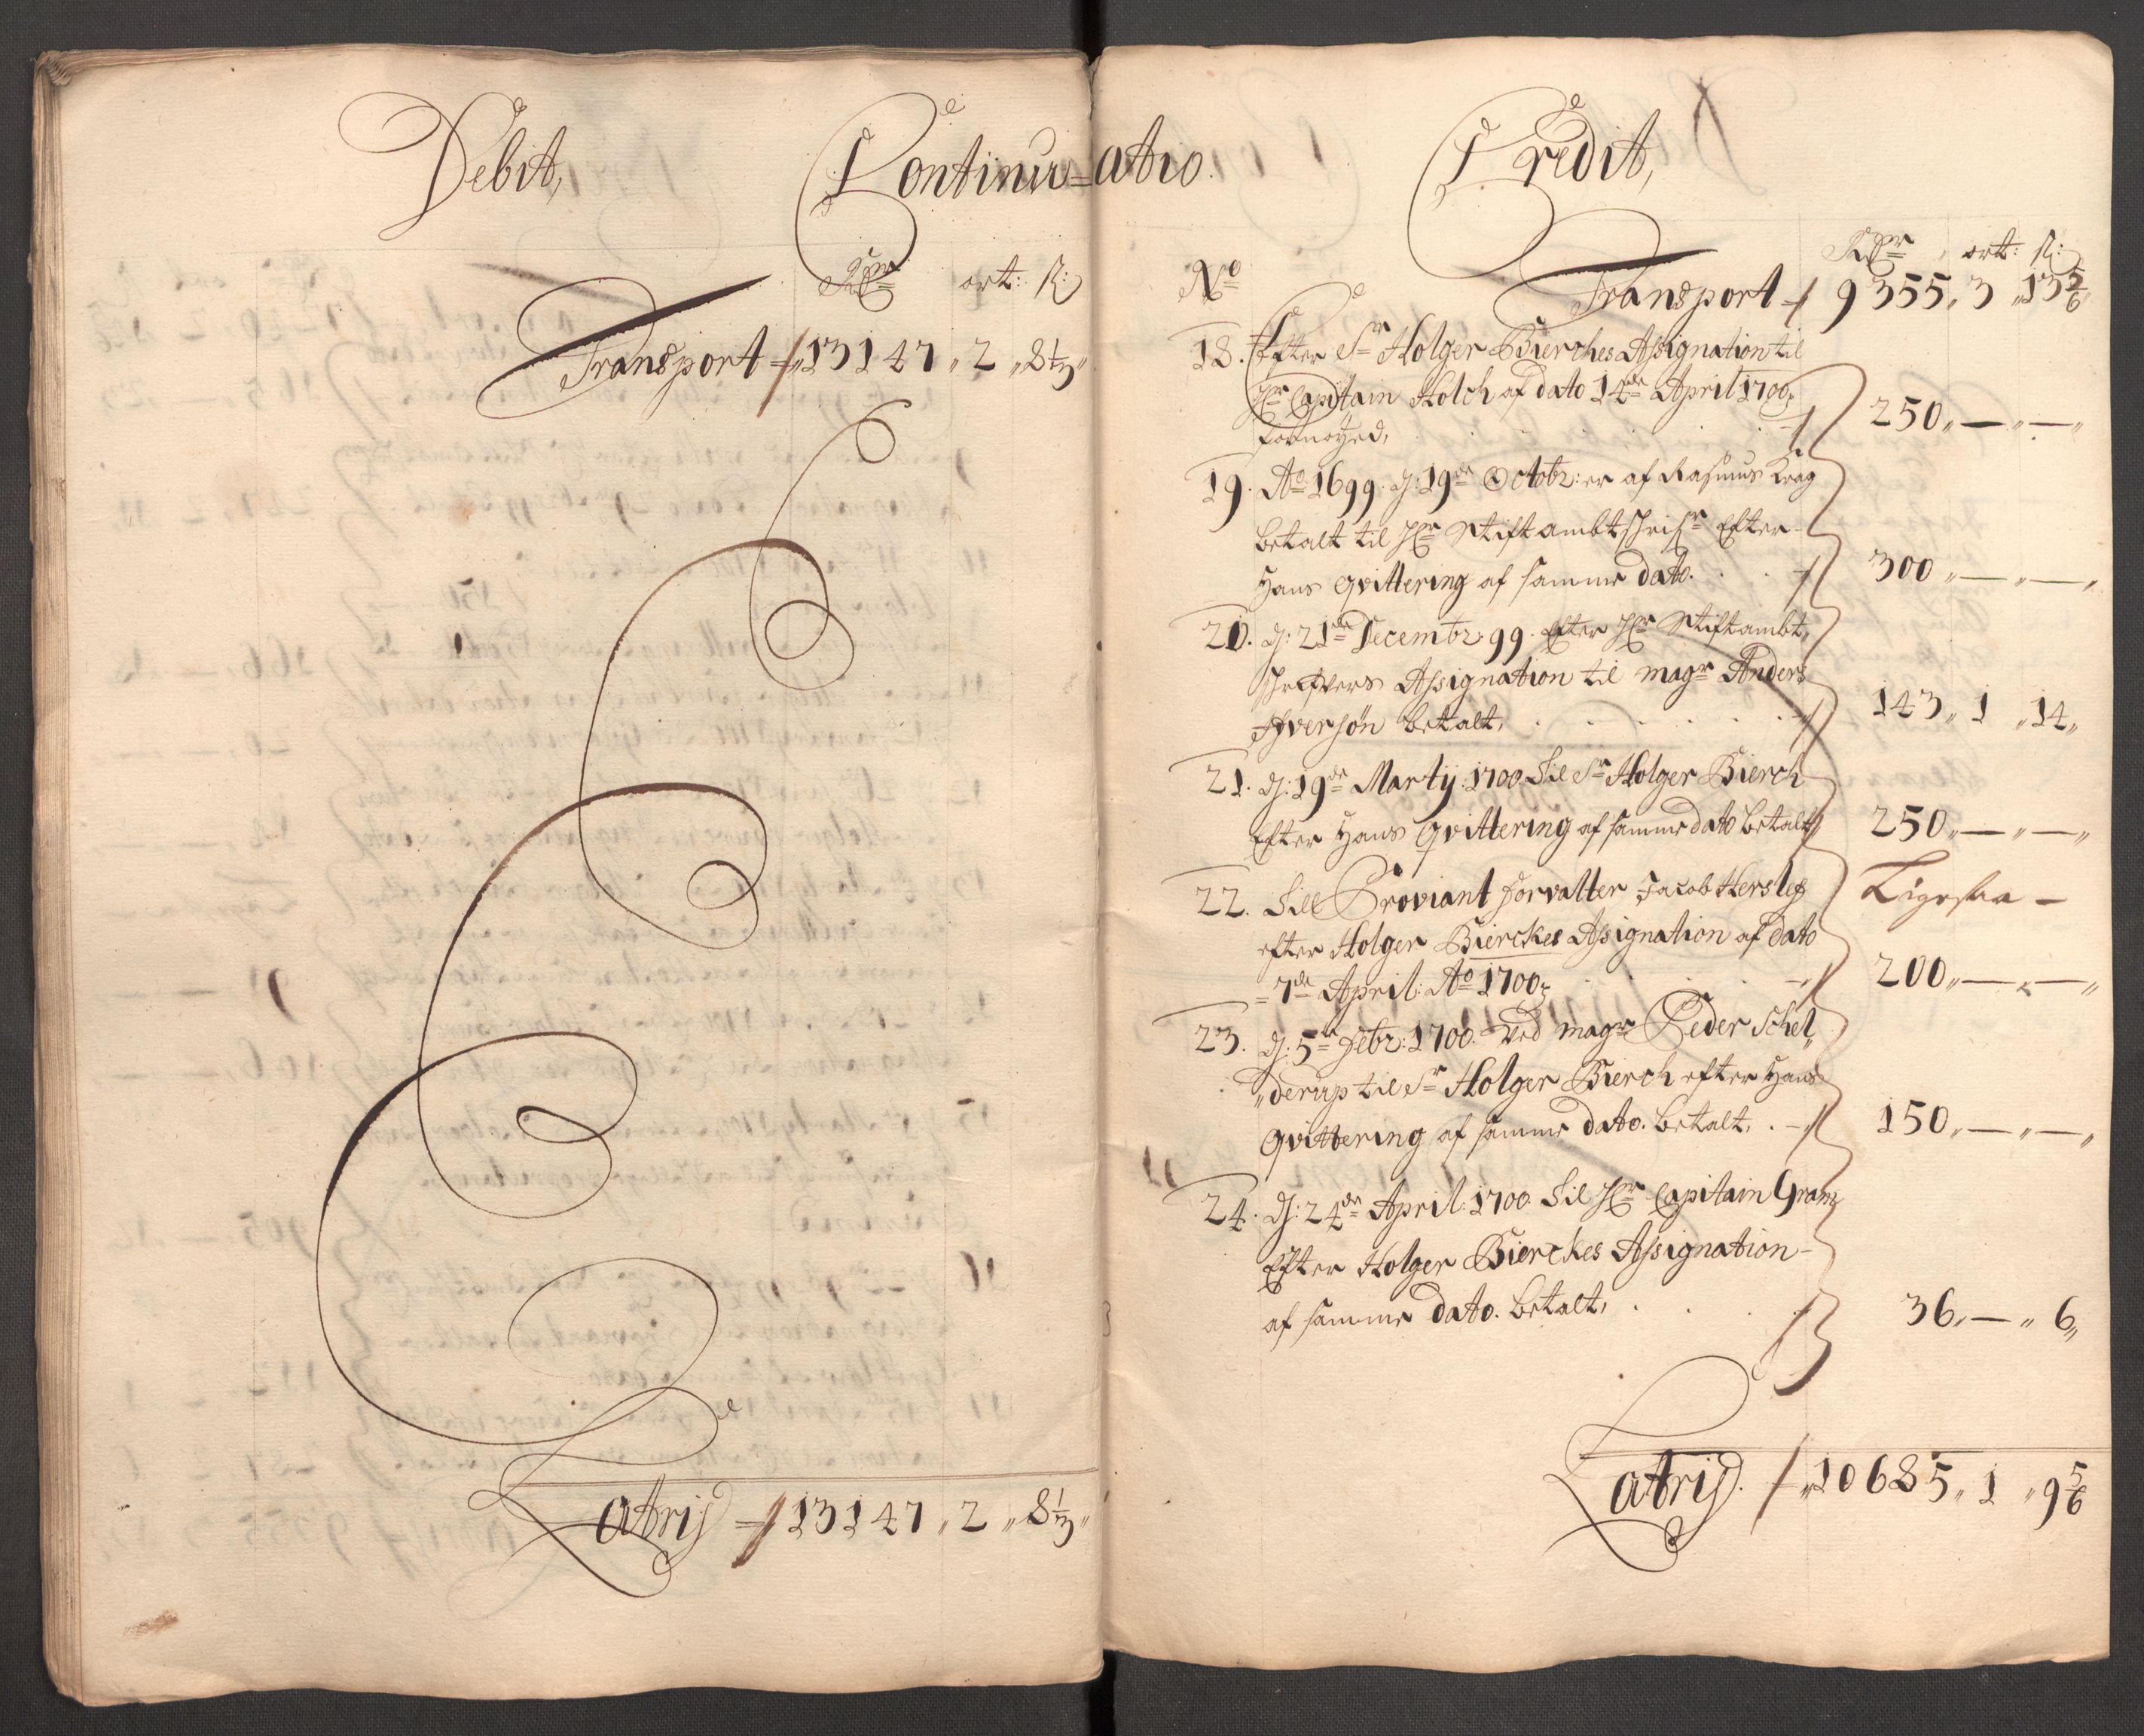 Debit,
Continu=atio.
Rdr ort: s:
Transport 13147 " 2 " 8 1/3 "
Latris 13147 " 2 " 8 1/3 "
Credit,
No
Rdr ort: s:
Transport 9355 " 3 " 13 5/6
18. Efter Sr Holger Bierches Assignation til
Hr Capitain Holch af dato 14de April 1700
fornøyed, 250 " — " — "
19. Ao 1699. d: 19de Octobr: er af Rasmus Krag
betalt til Hr Stiftambtschrifr Efter
Hans qvittering af samme dato. 300 " — " — "
20. d: 21de Decembr. 99. Efter Hr Stiftambt,
schrifvers Assignation til magr Anders
Iversøn betalt, 143 " 1 " 14 "
21. d: 19de Martij 1700 Til Sr Holger Bierch
Efter Hans Qvittering af samme dato betalt 250 " — " — "
22. Till Proviant forvalter Jacob Herslef Ligesaa —
efter Holger Bierckes Assignation af dato
= 7de April: Ao 1700 200 " — " — "
23. d: 5te Febr: 1700. Ved magr Peder Schel,
"derup til Sr Holger Bierch efter Hans
Qvittering af samme dato. betalt. 150 " — " — "
24. d: 24de April: 1700 Til Hr Capitain Gram
Efter Holger Bierckes Assignation
af samme dato. betalt, 36 " — " 6 "
Latris. 10685 " 1 " 9 5/6